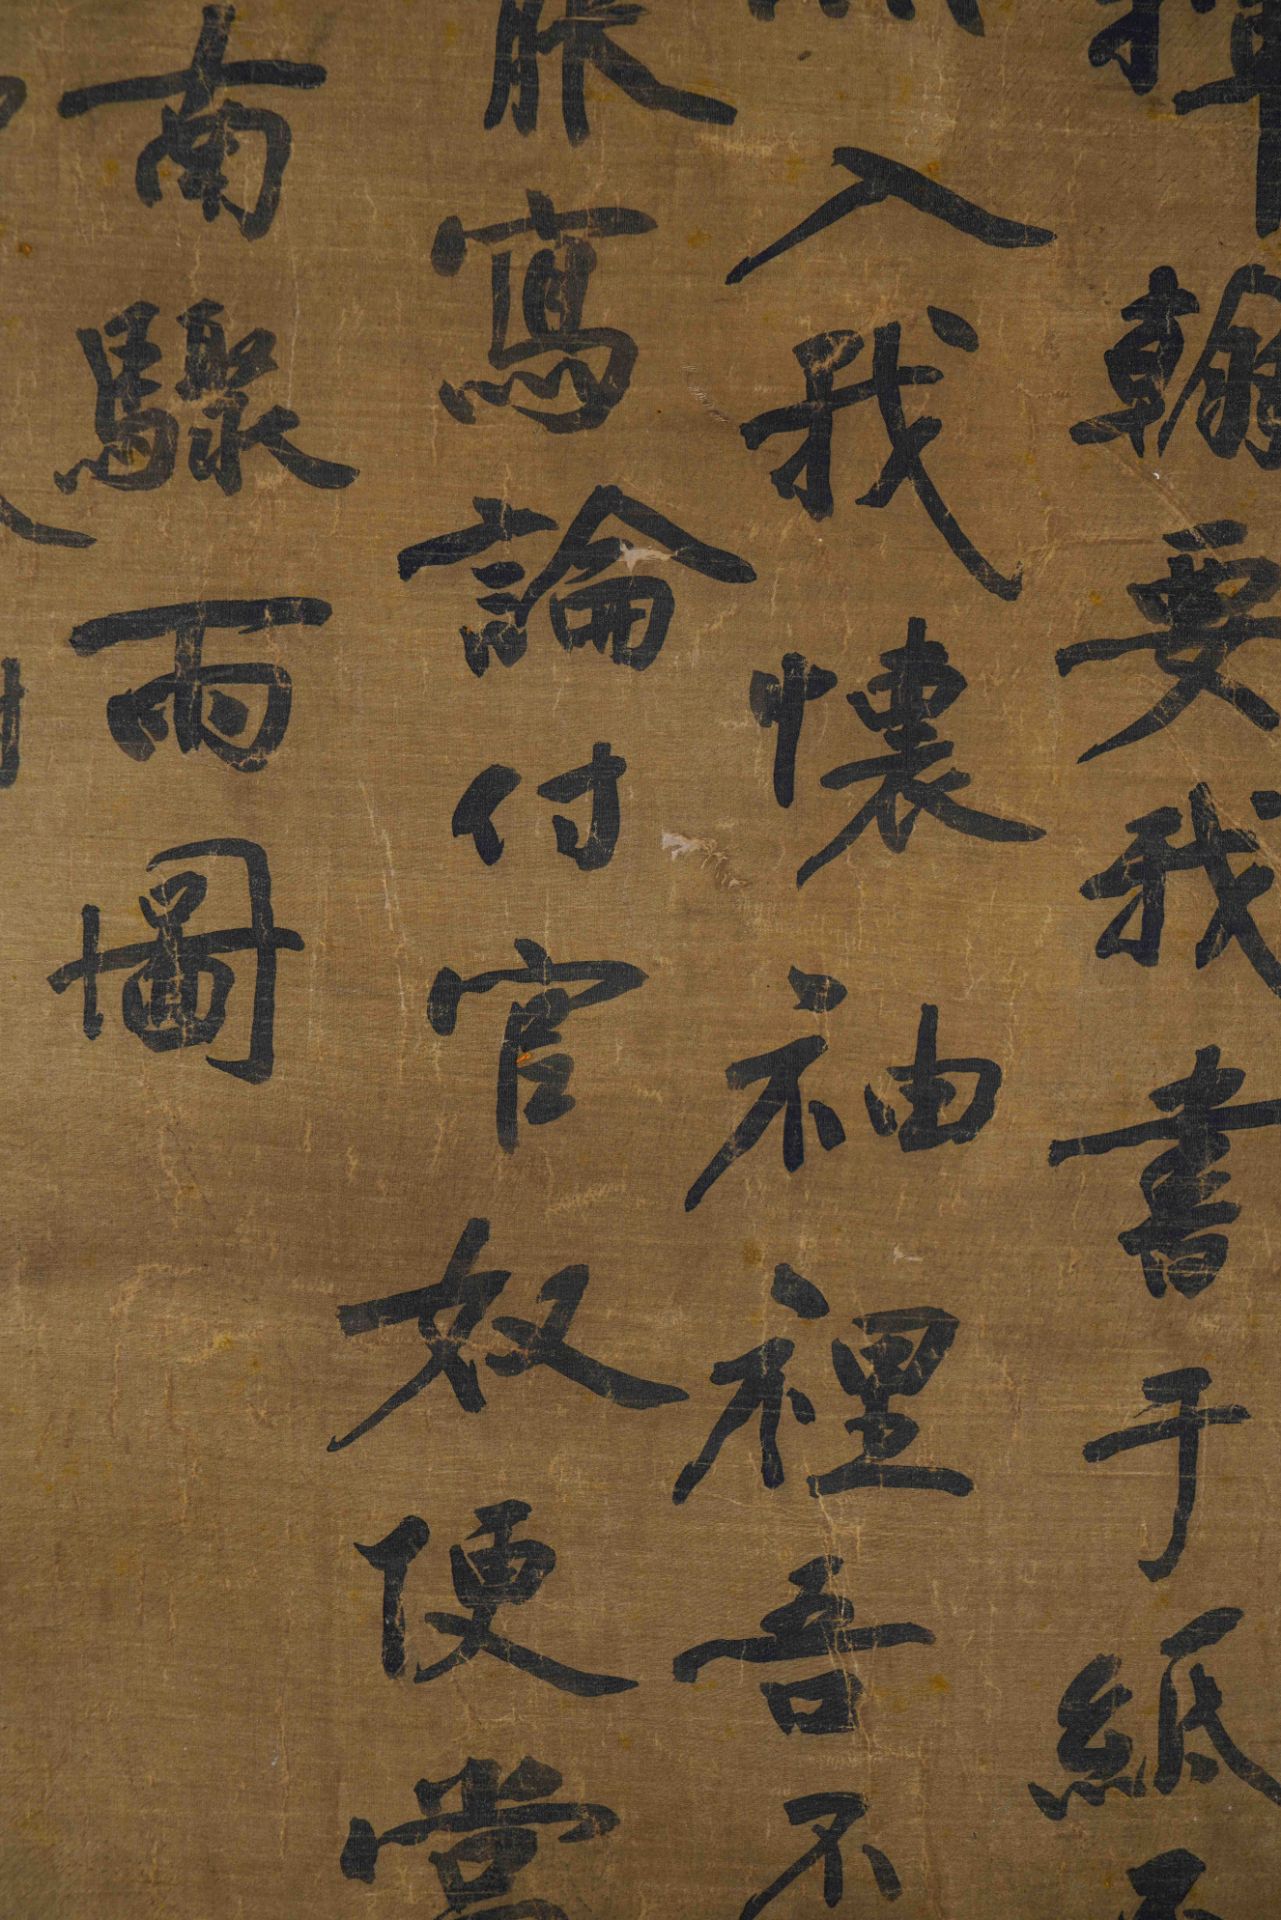 揮翰要我書于紙
入我懷袖裡吾不
脹寫論付官奴便當
南驟雨圖